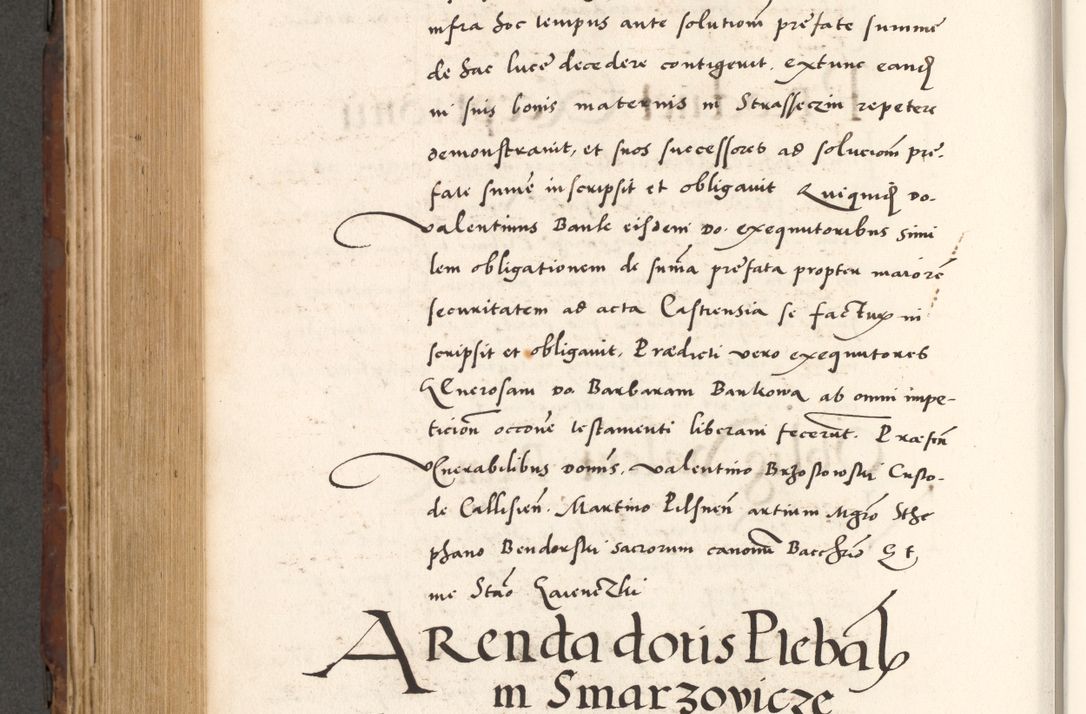 infra hoc tempus ante solutionē prefate summe
de hac luce decedere contigerit, extunc eandē
in suis bonis maternis in Strasseczin repetere
demonstravit, et suos successores ad solucionē pre-
fate sume inscripsit et obligavit Quiquidē do.
Valentinus Banke eisdem do. exequutoribus simi
lem obligationem de sum̄a prefata propter maiorē
securitatem ad acta Castrensia se facturum in
scripsit et obligavit. Prædicti vero exequutores
Generosam do. Barbaram Bankowa ab omni impe-
ticionē occone testamenti liberam fecerūt. Præsen̄
Venerabilibus domīs, Valentino Brzostowski Custo-
de Callisien̄. Martino Pilsnen̄ artium Mgrō Sthe
phano Bendorski sacrorum canonū Bacchrō Et
me Stāo
Arenda dotis Plebal
in Smarzovicze